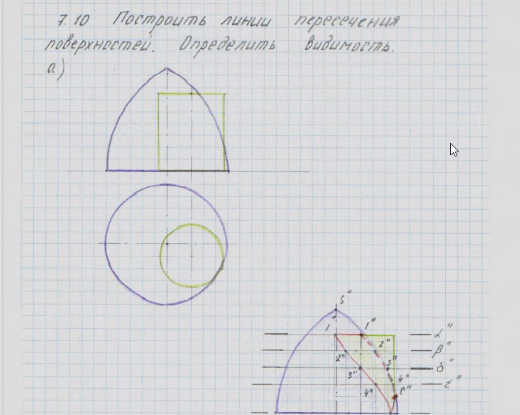 7.10 Построить линии пересечения
поверхностей. Определить видимость.
а)
S"
1 1" α"
2" 2" β"
3" 3" δ"
4" 4"